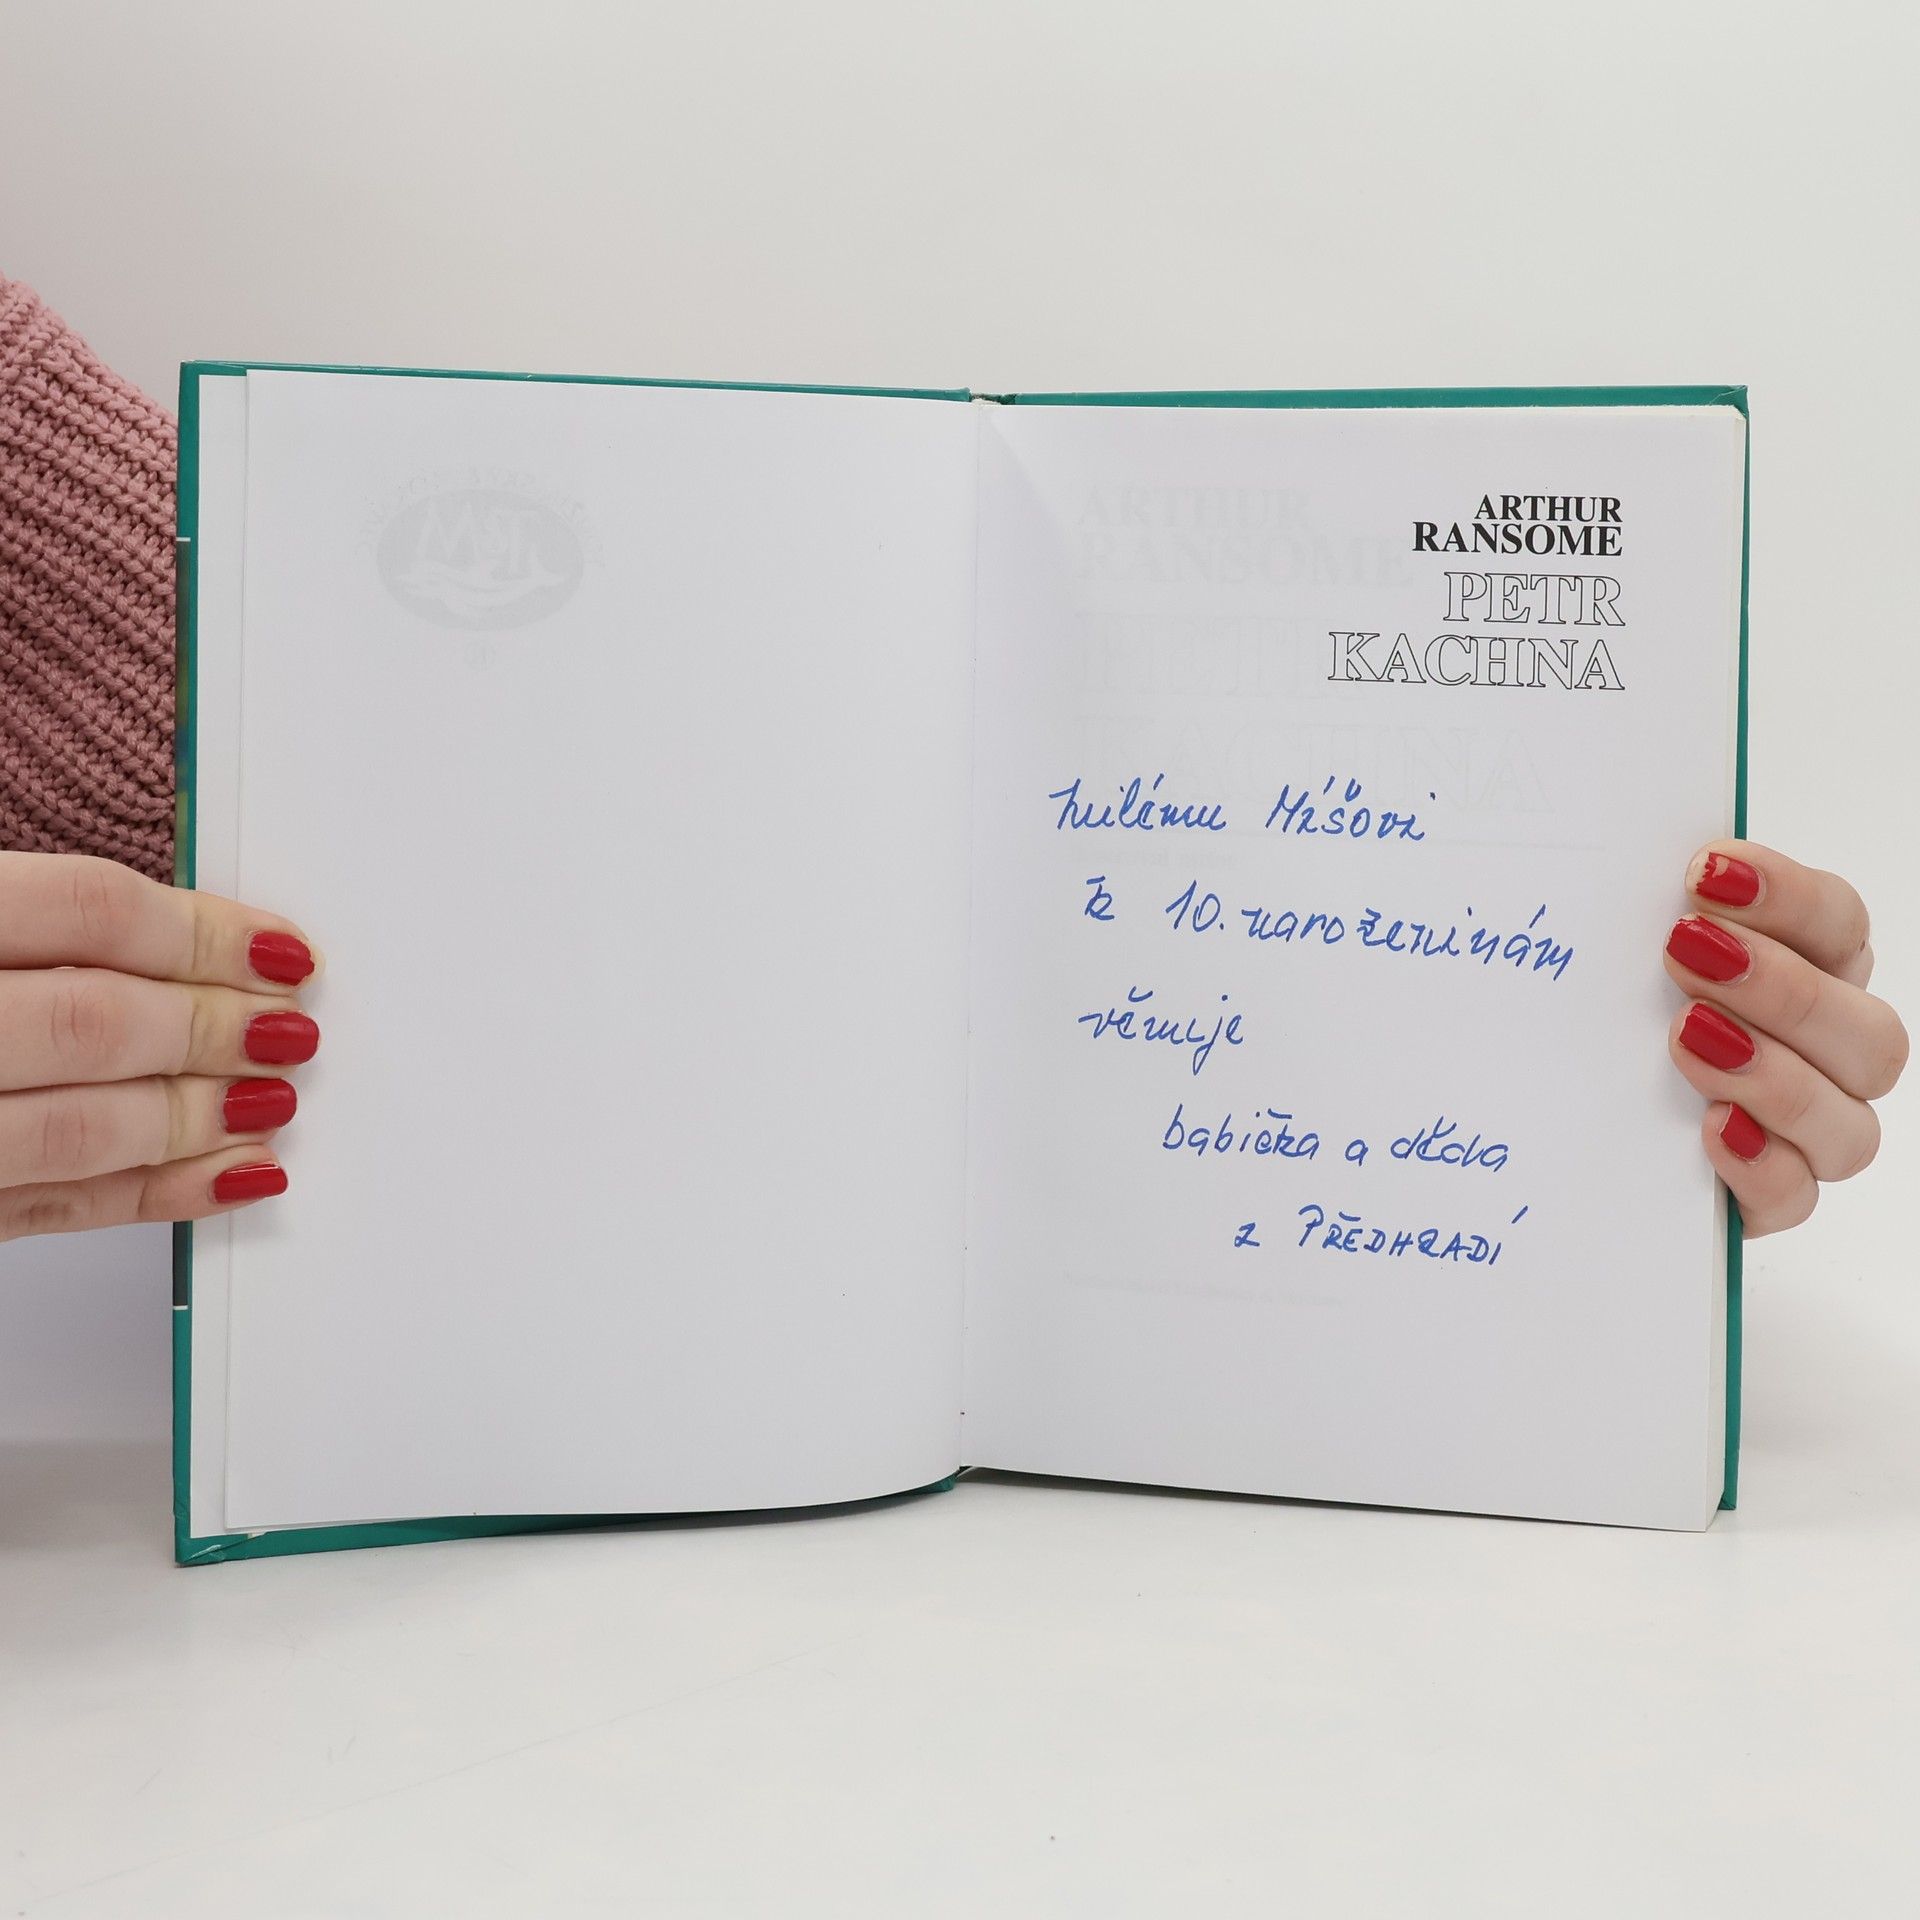 ARTHUR
RANSOME
PETR
KACHNA
milému Míšovi
k 10. narozeninám
věnuje
babička a děda
z PŘEDHRADÍ